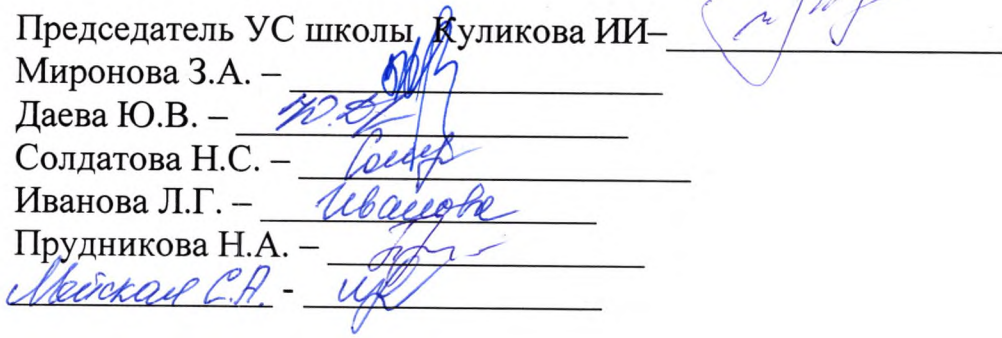 Председатель УС школы Куликова ИИ–
Миронова З.А. –
Даева Ю.В. –
Солдатова Н.С. –
Иванова Л.Г. – Иванова
Прудникова Н.А. –
Майская С.А. -